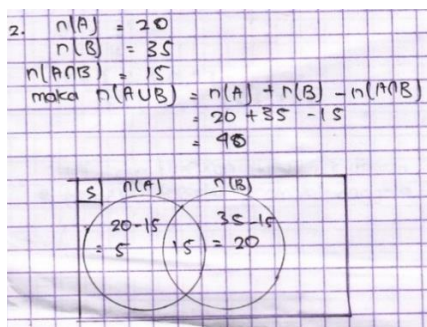 2. n(A) = 20
n(B) = 35
n(A∩B) = 15
maka n(A∪B) = n(A) + n(B) - n(A∩B)
= 20 + 35 - 15
= 40
S n(A) n(B)
20-15 35-15
= 5 15 = 20